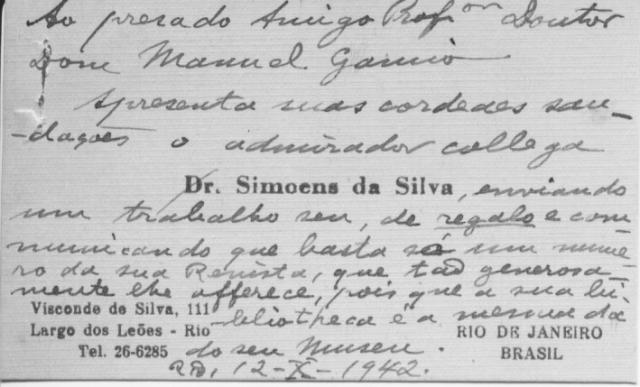 Ao presado Amigo Profor Doutor
Dom Manuel Gamio
Apresenta suas cordeaes sau-
-dações o admirador collega
Dr. Simoens da Silva, enviando
um trabalho seu, de regalo e com
municando que basta só um nume-
ro da sua Revista, que tão generosa-
mente lhe offerece, pois que a sua bi-
Visconde de Silva, 111
bliotheca é a mesma da
Largo dos Leões - Rio
RIO DE JANEIRO
Tel. 26-6285
do seu Museu.
BRASIL
12-X-1942.